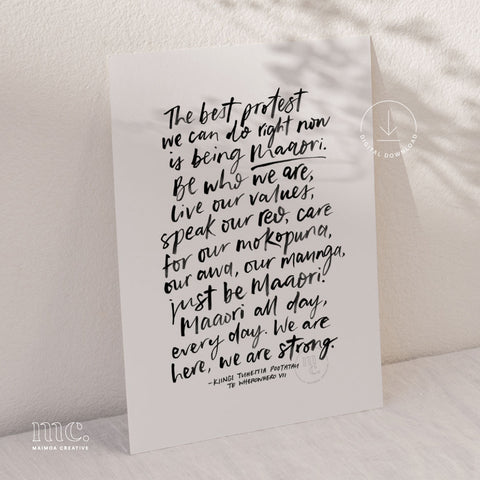 The best protest
we can do right now
is being Maaori.
Be who we are,
live our values,
speak our reo, care
for our mokopuna,
our awa, our maunga,
just be Maaori.
Maaori all day,
every day. We are
here, we are strong.
- KIINGI TUHEITIA POOTATAU
TE WHEROWHERO VII
mc.
DIGITAL DOWNLOAD
mc.
MAIMOA CREATIVE